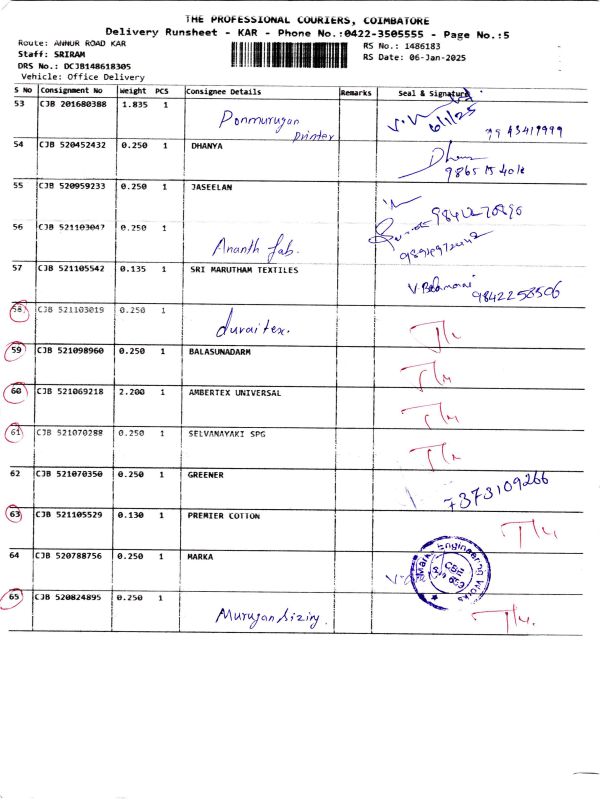 THE PROFESSIONAL COURIERS, COIMBATORE
Delivery Runsheet - KAR - Phone No.:0422-3505555 - Page No.:5
Route: ANNUR ROAD KAR
RS No.: 1486183
Staff: SRIRAM
RS Date: 06-Jan-2025
DRS No.: DCJB148618305
Vehicle: Office Delivery
S No Consignment No Weight PCS Consignee Details Remarks Seal & Signature
53 CJB 201680388 1.835 1 Ponmurugan Printer 6/1/25
54 CJB 520452432 0.250 1 DHANYA
55 CJB 520959233 0.250 1 JASEELAN
56 CJB 521103047 0.250 1 Ananth fab.
57 CJB 521105542 0.135 1 SRI MARUTHAM TEXTILES 9842258506
58 CJB 521103019 0.250 1 duraitex.
59 CJB 521098960 0.250 1 BALASUNADARM
60 CJB 521069218 2.200 1 AMBERTEX UNIVERSAL
61 CJB 521070288 0.250 1 SELVANAYAKI SPG
62 CJB 521070350 0.250 1 GREENER 7373109266
63 CJB 521105529 0.130 1 PREMIER COTTON
64 CJB 520788756 0.250 1 MARKA Engineering Works CBE
65 CJB 520824895 0.250 1 Murugan Sizing.